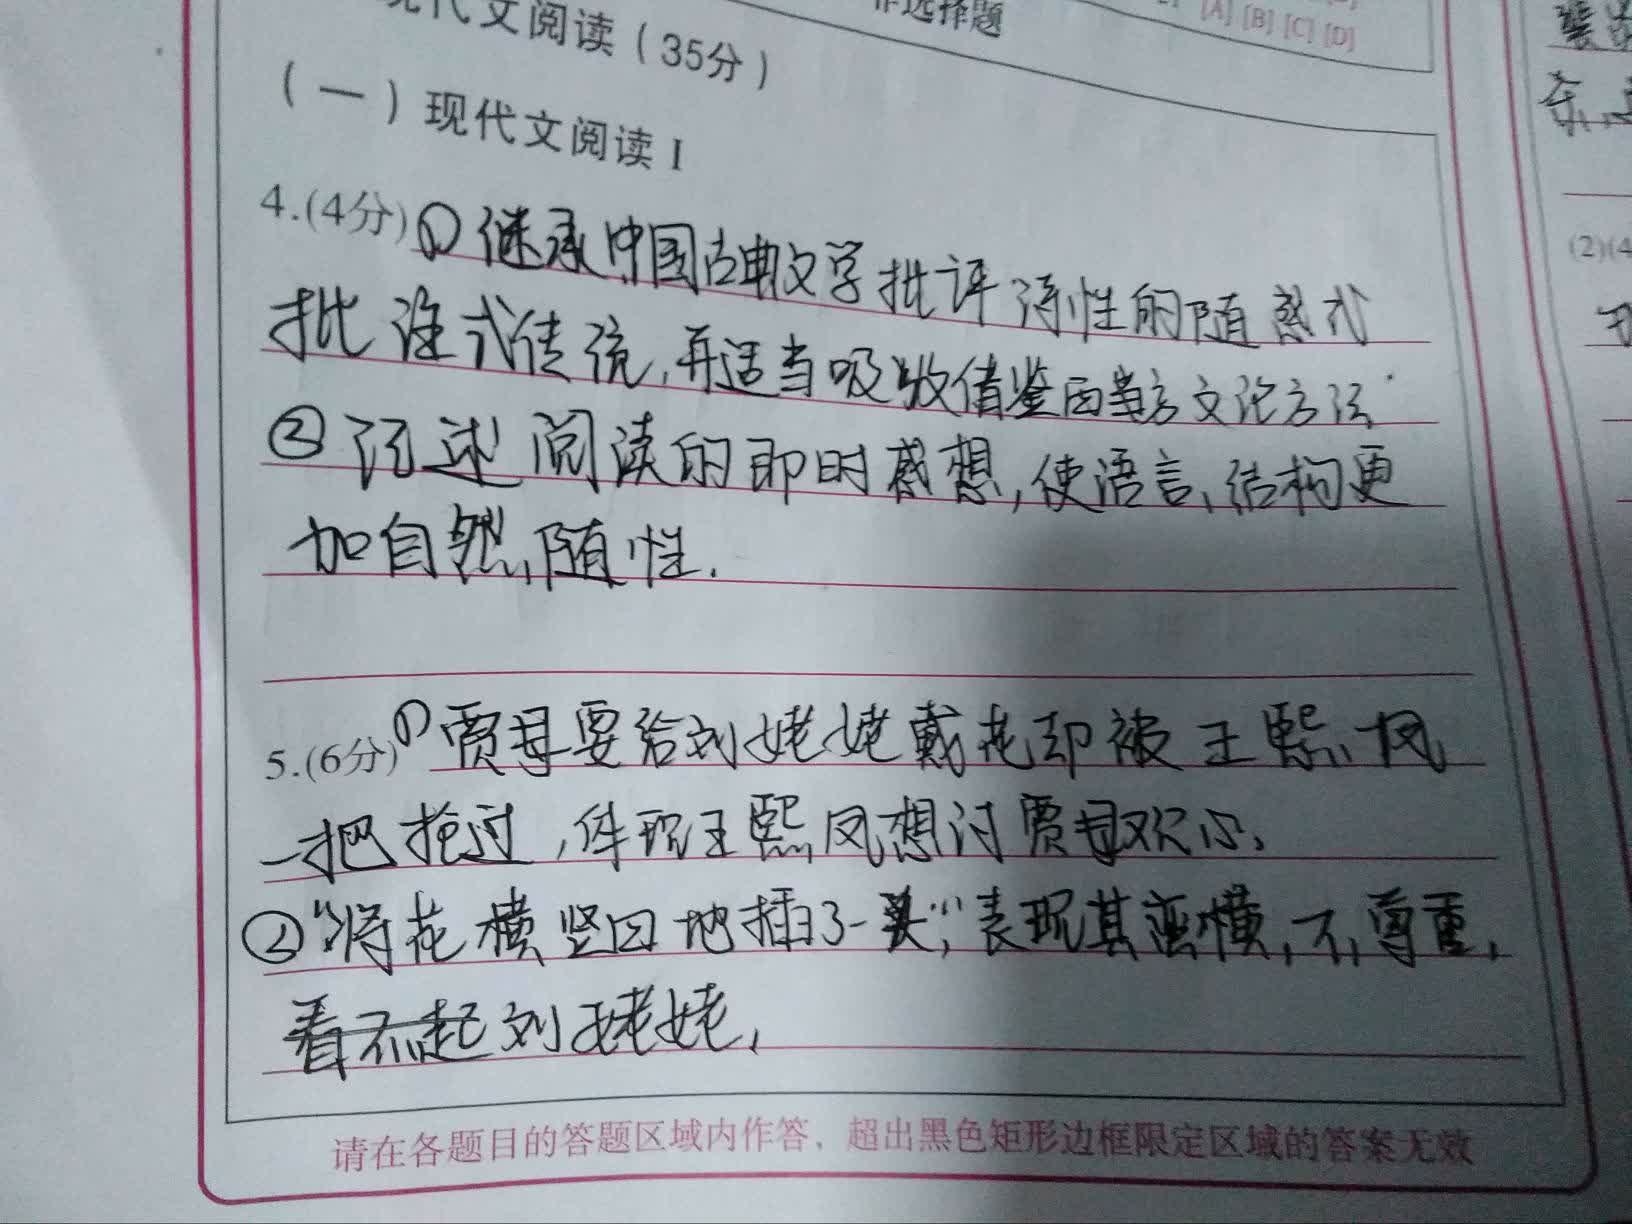 作选择题
[A] [B] [C] [D]
现代文阅读(35分)
(一)现代文阅读 I
4.(4分)① 继承中国古典文学批评诗性的随感式
批注式传统,再适当吸收借鉴西方文论方法
② 记述阅读的即时感想,使语言、结构更
加自然、随性.
5.(6分)① 贾母要给刘姥姥戴花却被王熙凤
一把抢过,体现王熙凤想讨贾母欢心,
②“将花横竖四地插了一头”,表现其蛮横,不尊重,
看不起刘姥姥,
请在各题目的答题区域内作答,超出黑色矩形边框限定区域的答案无效
(2)(4